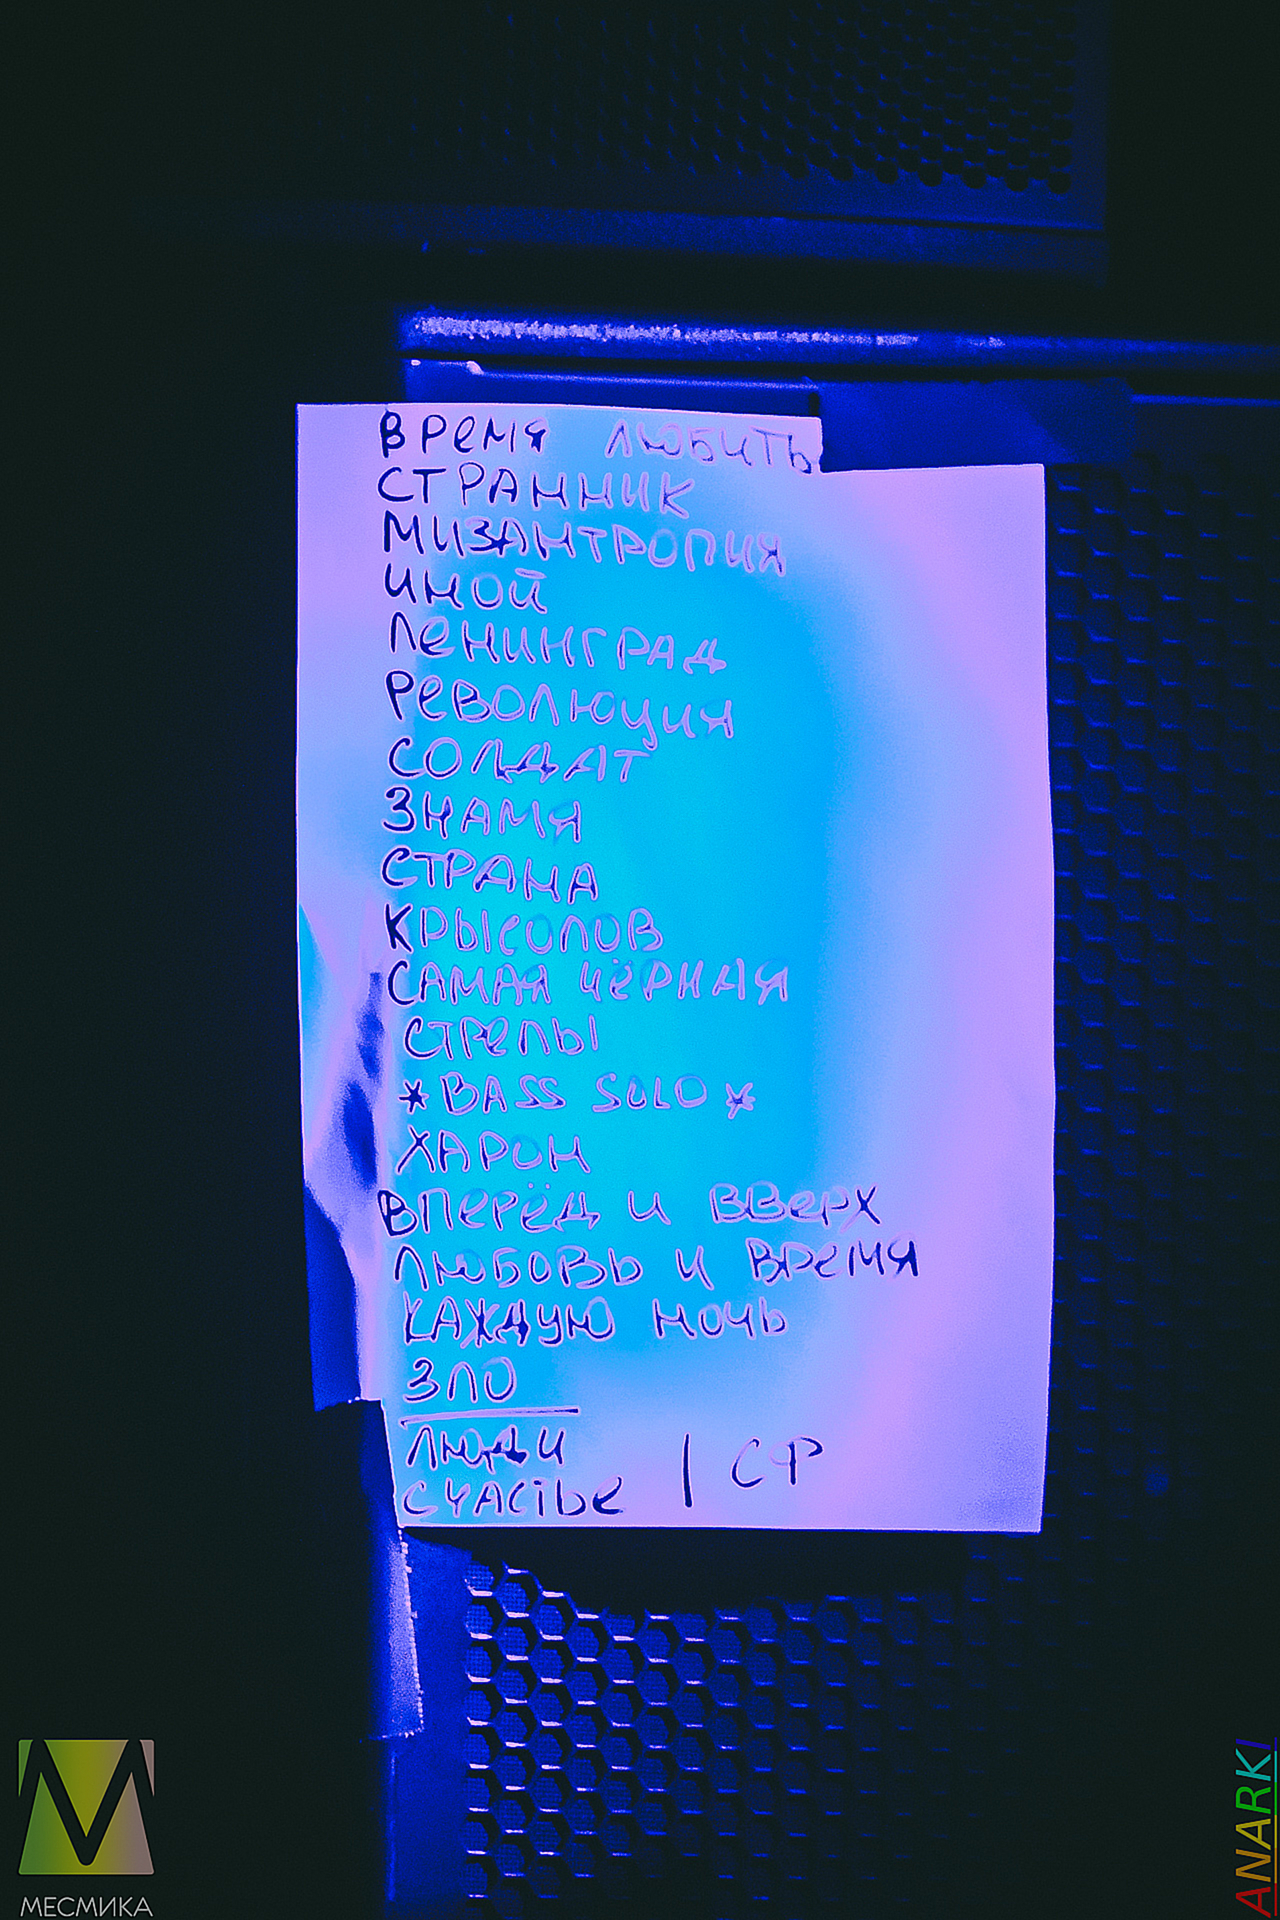 ВРЕМЯ ЛЮБИТЬ
СТРАННИК
МИЗАНТРОПИЯ
ИНОЙ
ЛЕНИНГРАД
РЕВОЛЮЦИЯ
СОЛДАТ
ЗНАМЯ
СТРАНА
КРЫСОЛОВ
САМАЯ ЧЁРНАЯ
СТРЕЛЫ
*BASS SOLO*
ХАРОН
ВПЕРЁД И ВВЕРХ
ЛЮБОВЬ И ВРЕМЯ
КАЖДУЮ НОЧЬ
ЗЛО
ЛЮДИ
СЧАСТЬЕ / СФ
МЕСМИКА
ANARKI